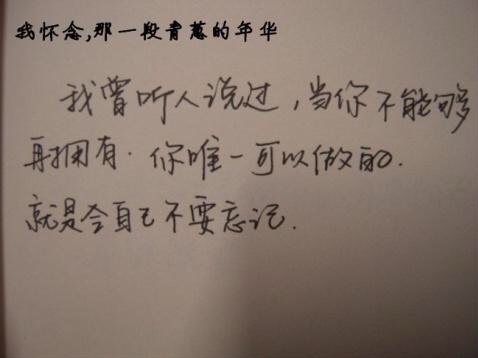 我怀念,那一段青葱的年华
我曾听人说过,当你不能够
再拥有.你唯一可以做的.
就是令自己不要忘记.